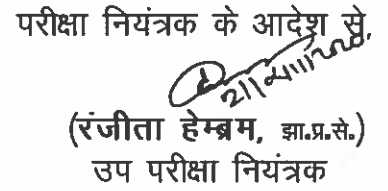 परीक्षा नियंत्रक के आदेश से,
(रंजीता हेम्ब्रम, झा.प्र.से.)
उप परीक्षा नियंत्रक